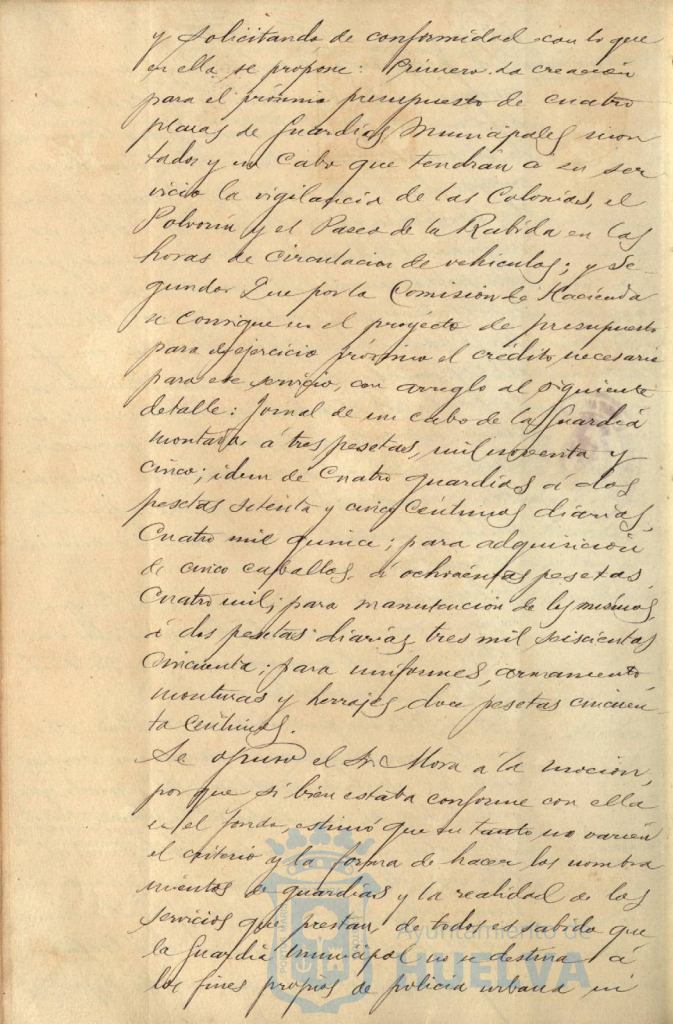 y solicitando de conformidad con lo que
en ella se propone: Primero. La creación
para el próximo presupuesto de cuatro
plazas de Guardias Municipales mon
tados y un Cabo que tendran á su ser
vicio la vigilancia de las Colonias, el
Polvorin y el Paseo de la Rabida en las
horas de circulacion de vehiculos; y Se-
gundo: Que por la Comisión de Hacienda
se consigne en el proyecto de presupuesto
para el ejercicio próximo el crédito necesario
para ese servicio, con arreglo al siguiente
detalle: Jornal de un cabo de la Guardia
montada á tres pesetas, mil noventa y
cinco; idem de Cuatro guardias á dos
pesetas setenta y cinco centimos diarias,
Cuatro mil quince; para adquisición
de cinco caballos, á ochocientas pesetas
Cuatro mil; para manutencion de los mismos,
á dos pesetas diarias tres mil seiscientas
cincuenta; para uniformes, armamento,
monturas y herrajes, doce pesetas cincuen
ta centimos.
Se opuso el Sr. Mora á la mocion,
por que si bien estaba conforme con ella
en el fondo, estimó que en tanto no varien
el criterio y la forma de hacer los nombra
mientos de guardias y la realidad de los
servicios que prestan, de todos es sabido que
la Guardia Municipal no se destina á
los fines propios de policia urbana ni
Ayuntamiento de
HUELVA